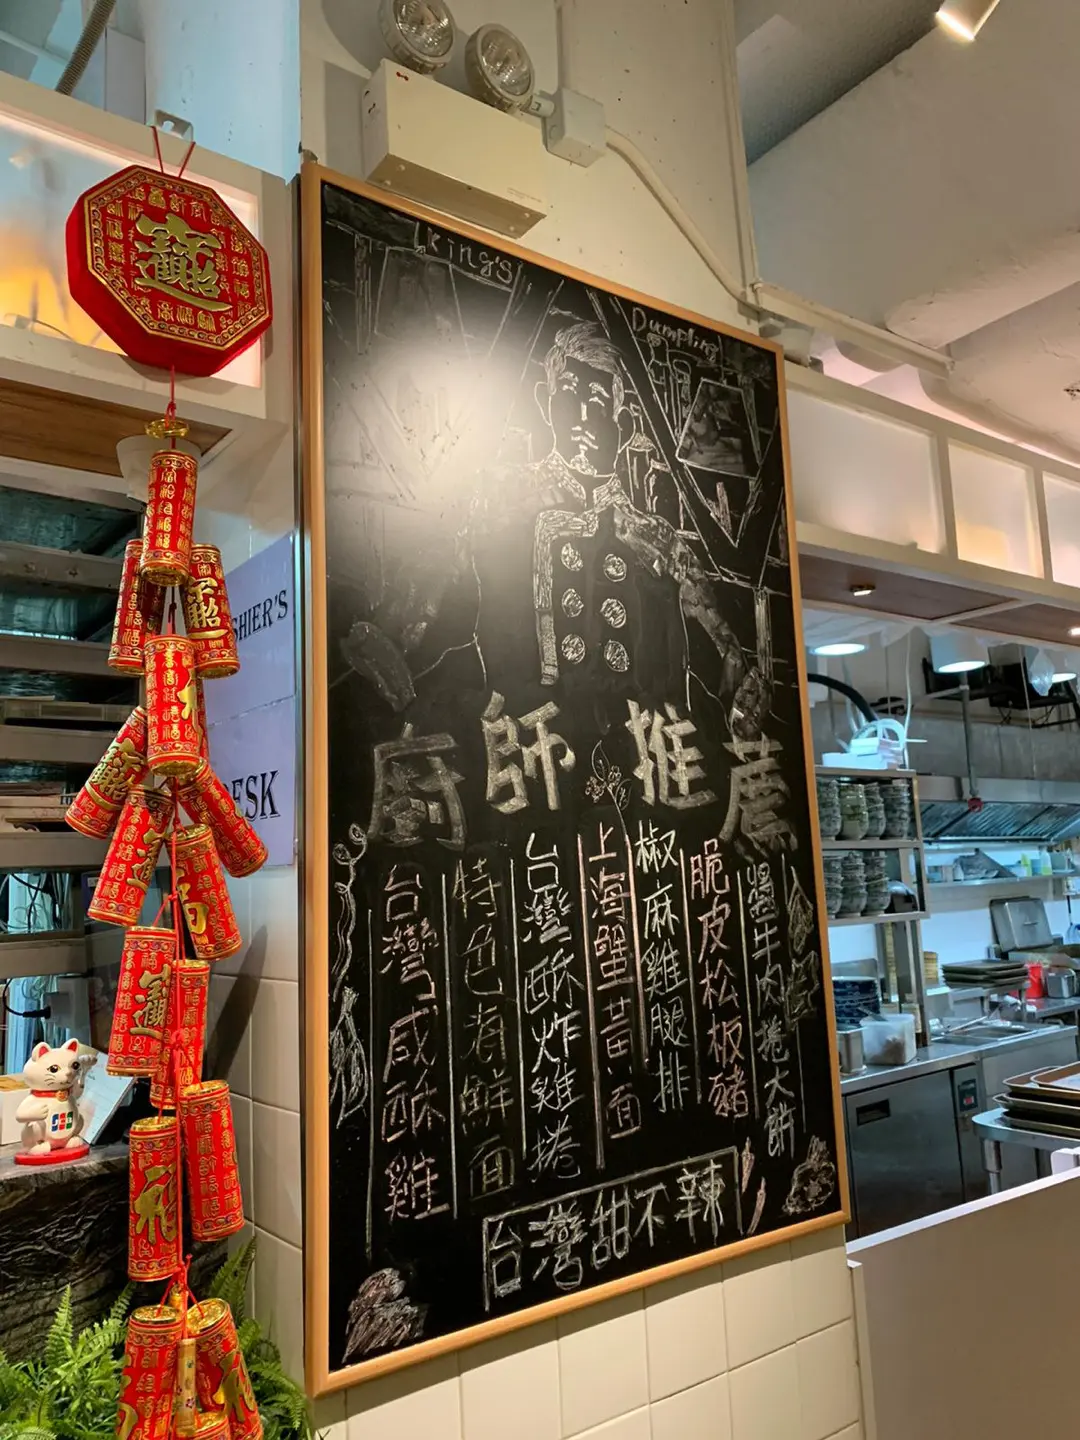 King's
Dumpling
廚師推薦
台灣咸酥雞
特色海鮮面
台灣酥炸雞捲
上海蟹黃面
椒麻雞腿排
脆皮松板豬
醬牛肉捲大餅
台灣甜不辣
SHIER'S
ESK
招財進寶
JCB